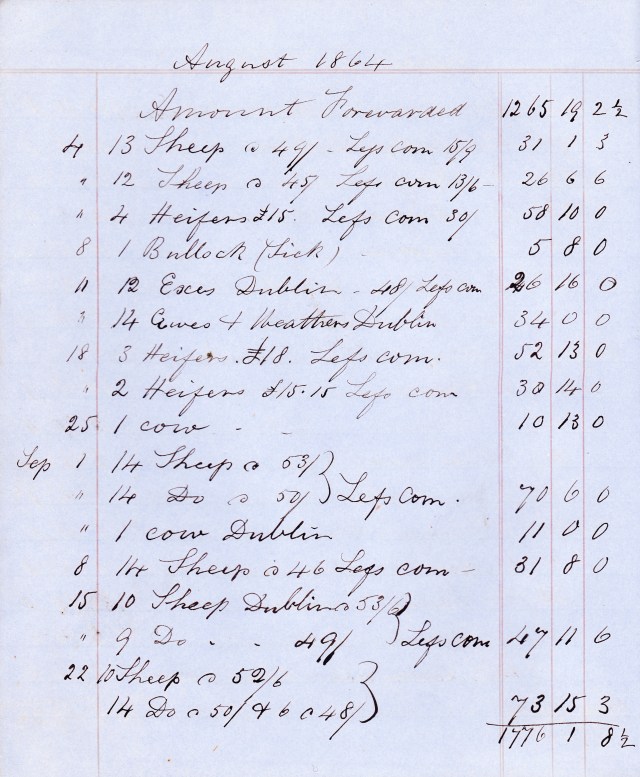 August 1864
Amount Forwarded 1265 19 2½
4 13 Sheep @ 49/ - Less com 15/9 31 1 3
" 12 Sheep @ 45/ Less com 13/6 - 26 6 6
" 4 Heifers £15. Less com 30/ 58 10 0
8 1 Bullock (Sick) 5 8 0
11 12 Ewes Dublin - 48/ Less com 26 16 0
" 14 Ewes & Weathers Dublin 34 0 0
18 3 Heifers. £18. Less com. 52 13 0
" 2 Heifers £15.15 Less com 30 14 0
25 1 cow - - 10 13 0
Sep 1 14 Sheep @ 53/
" 14 Do @ 50/ } Less com. 70 6 0
" 1 cow Dublin 11 0 0
8 14 Sheep @ 46 Less com - 31 8 0
15 10 Sheep Dublin @ 53/6
" 9 Do - - 49/ } Less com 47 11 6
22 10 Sheep @ 52/6
14 Do @ 50/ & 6 @ 48/ } 73 15 3
1776 1 8½